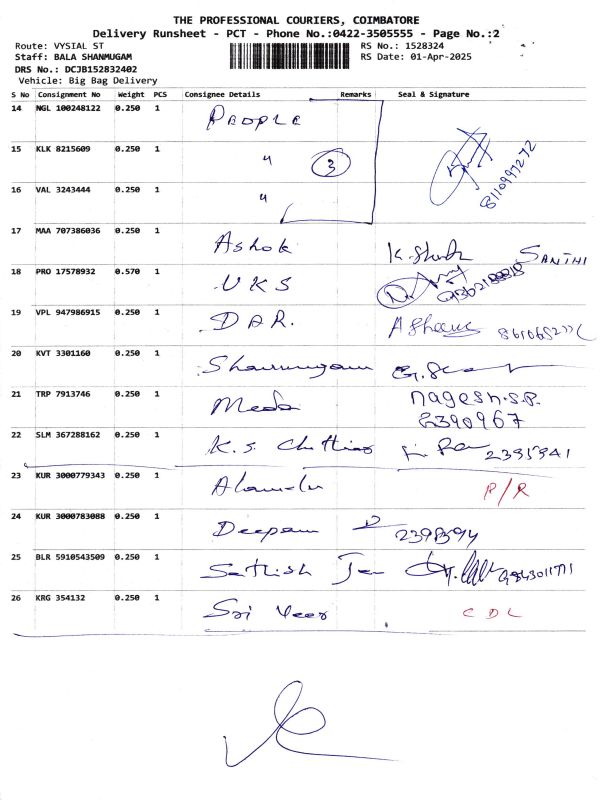 THE PROFESSIONAL COURIERS, COIMBATORE
Delivery Runsheet - PCT - Phone No.:0422-3505555 - Page No.:2
Route: VYSIAL ST RS No.: 1528324
Staff: BALA SHANMUGAM RS Date: 01-Apr-2025
DRS No.: DCJB152832402
Vehicle: Big Bag Delivery
S No Consignment No Weight PCS Consignee Details Remarks Seal & Signature
14 NGL 100248122 0.250 1 PEOPLE
15 KLK 8215609 0.250 1 〃 3 8110997272
16 VAL 3243444 0.250 1 〃
17 MAA 707386036 0.250 1 Ashok SANTHI
18 PRO 17578932 0.570 1 UKS
19 VPL 947986915 0.250 1 DAR.
20 KVT 3301160 0.250 1 Shanmugam
21 TRP 7913746 0.250 1 Meda nagesh.S.P.
2390967
22 SLM 367288162 0.250 1 K.S. Chettiar 2395941
23 KUR 3000779343 0.250 1 Alamelu P/R
24 KUR 3000783088 0.250 1 Deepam 2398594
25 BLR 5910543509 0.250 1 Sathish
26 KRG 354132 0.250 1 Sri Veer CDL